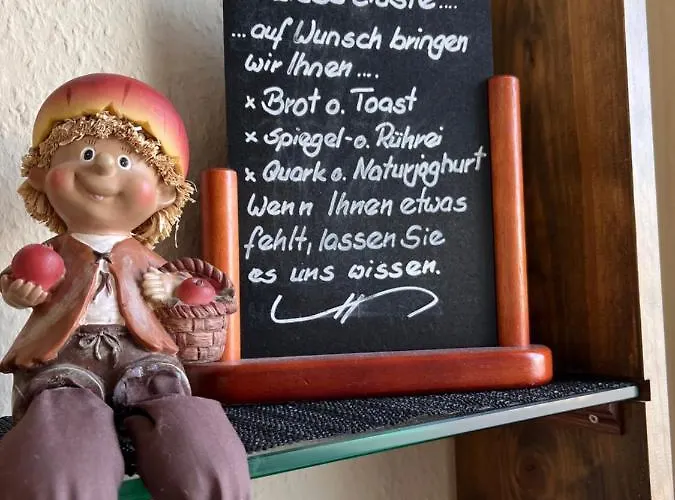 ...auf Wunsch bringen
wir Ihnen....
x Brot o. Toast
x Spiegel-o. Rührei
x Quark o. Naturjoghurt
Wenn Ihnen etwas
fehlt, lassen Sie
es uns wissen.